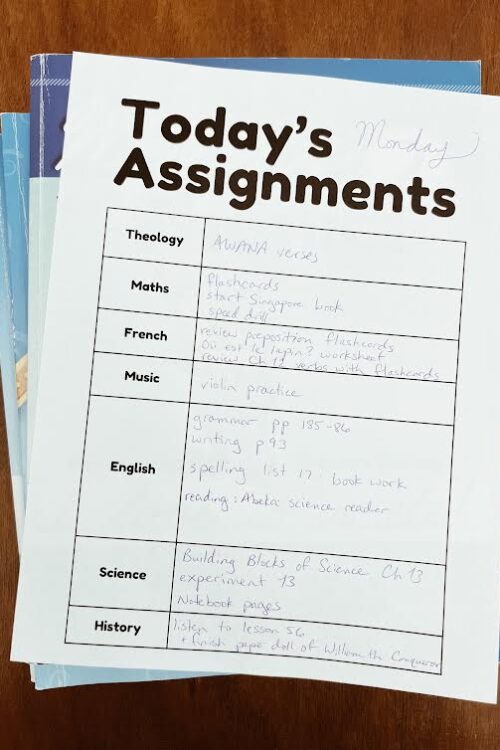 Today's
Monday
Assignments
Theology
AWANA verses
Maths
flashcards
start Singapore book
speed drill
French
review preposition flashcards
Où est le lapin? worksheet
review Ch 11 verbs with flashcards
Music
violin practice
English
grammar pp 185-86
writing p 93
spelling list 17: book work
reading: Abeka science reader
Science
Building Blocks of Science Ch 13
experiment 13
Notebook pages
History
listen to lesson 56
+ finish paper doll of William th Conqueror